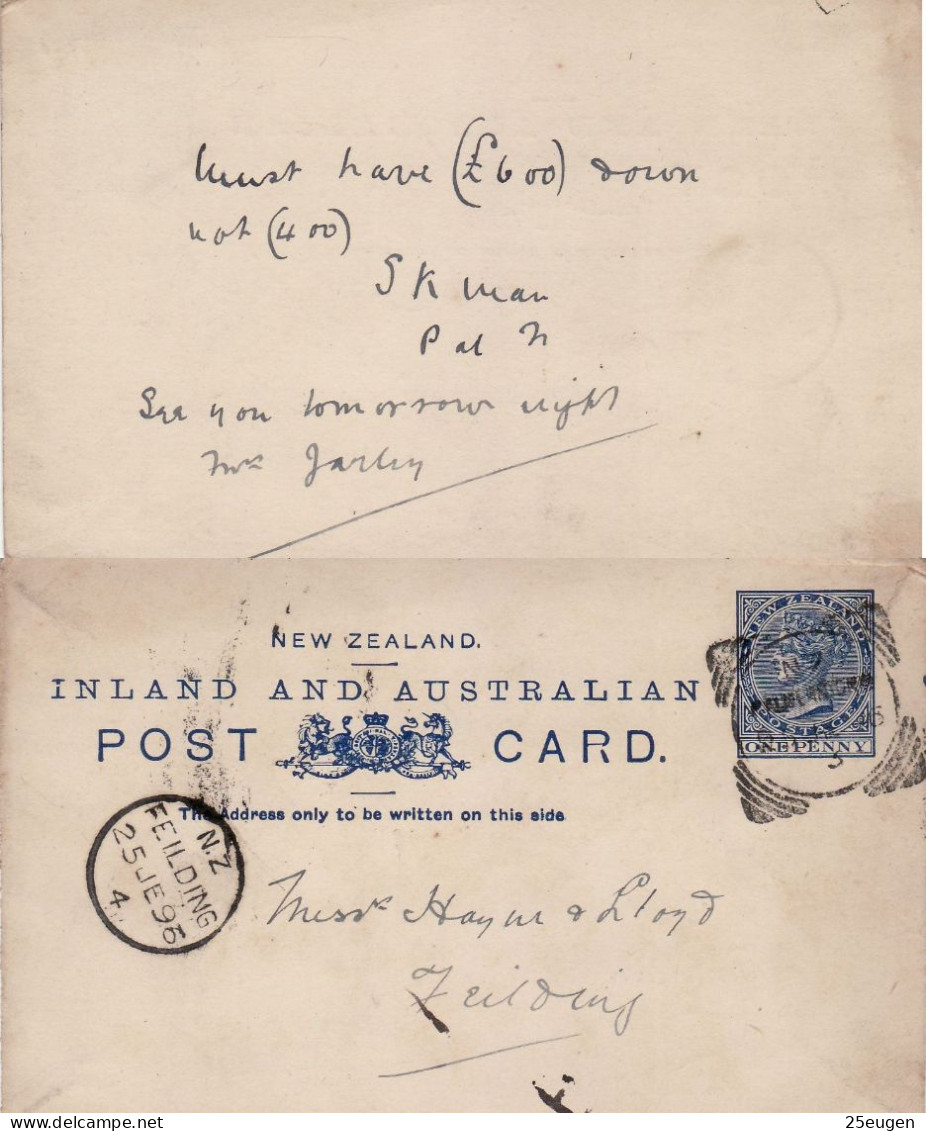 Must have (£600) down
not (400)
S K Man
Pal N
See you tomorrow night
Mrs Jarley
NEW ZEALAND.
INLAND AND AUSTRALIAN
POST CARD.
The Address only to be written on this side
NEW ZEALAND
POSTAGE
ONE PENNY
N.Z
FEILDING
25 JE 95
4
3
Messrs & Lloyd
Feilding
25eugen